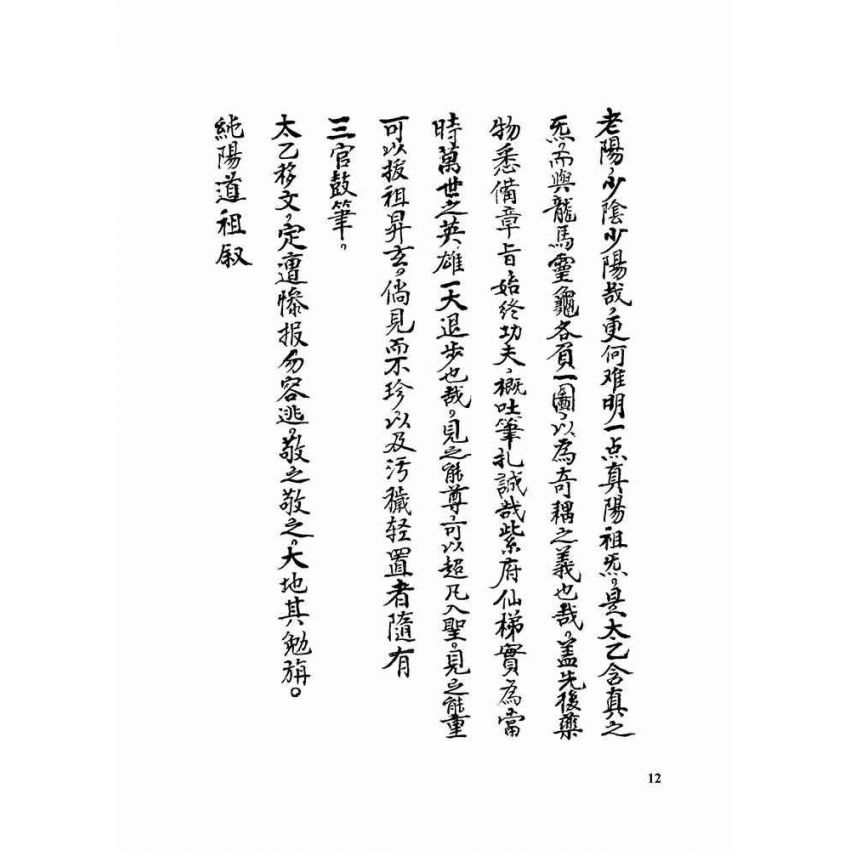 老陽，少陰少陽哉，更何难明一点真陽祖炁。是太乙含真之
炁，而與龍馬靈龜各負一圖，以為奇耦之義也哉。盖先後藥
物悉備章旨始终功夫，概吐筆札誠哉紫府仙梯實為當
時萬世之英雄一大退步也哉。見之能尊，可以超凡入聖。見之能重
可以拔祖昇玄。倘見而不珍以及污穢轻置者隨有
三官鼓筆。
太乙移文，定遭惨报勿容逃。敬之敬之。大地其勉旃。
純陽道祖叙
12